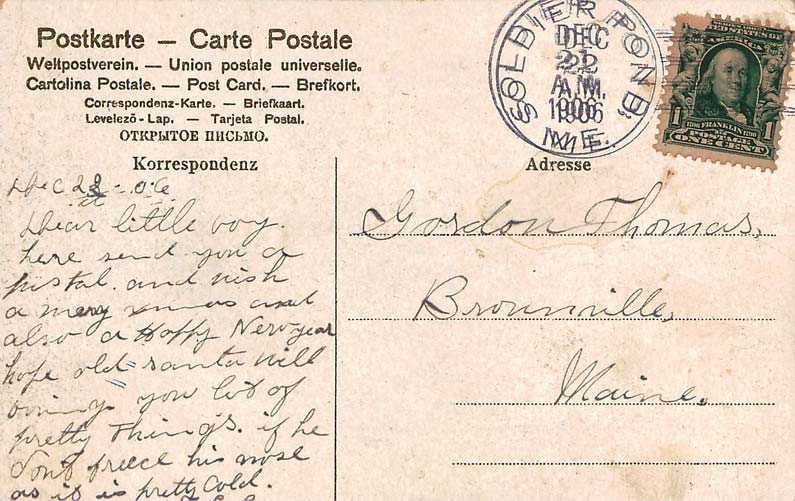 Postkarte — Carte Postale
Weltpostverein. — Union postale universelle.
Cartolina Postale. — Post Card. — Brefkort.
Correspondenz-Karte. — Briefkaart.
Levelező-Lap. — Tarjeta Postal.
ОТКРЫТОЕ ПИСЬМО.
SOLDIER POND,
DEC
22
A.M.
1906
ME.
UNITED STATES OF
AMERICA
1706 FRANKLIN 1790
1 POSTAGE 1
ONE CENT
Korrespondenz
Dec 22 - 06
Dear little boy.
here send you a
postal. and wish
a mery xmas and
also a Happy New year
hope old santa will
bring you lot of
pretty Things. if he
dont freece his nose
as it is pretty cold.
Adresse
Gordon Thomas,
Brownville,
Maine.